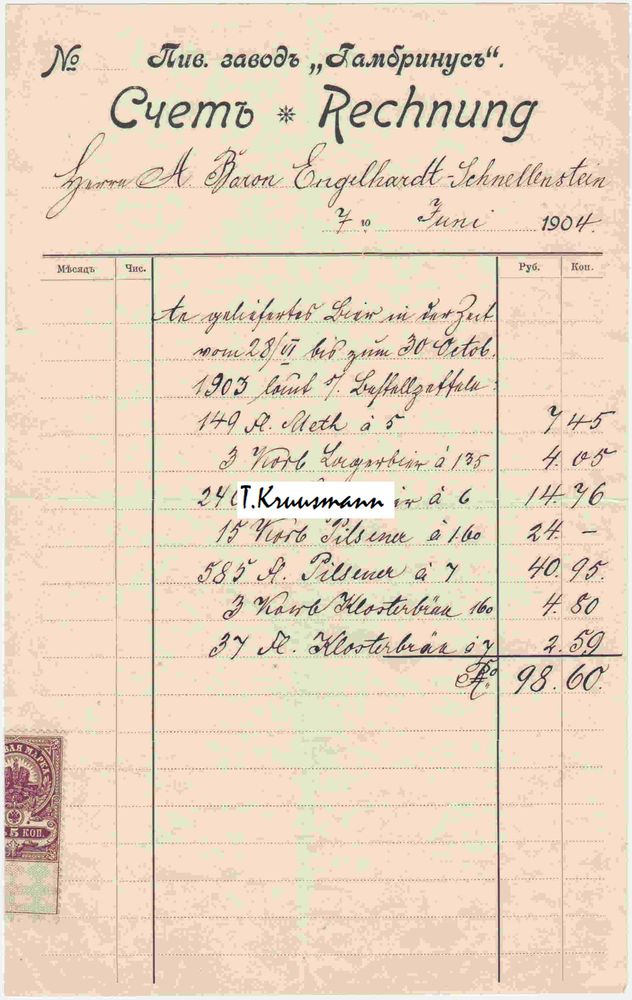 № Пив. заводъ „Гамбринусъ“.
Счетъ ⁕ Rechnung
Herrn A. Baron Engelhardt-Schnellenstein
7 го Juni 1904.
Мѣсяцъ Чис. Руб. Коп.
An geliefertes Bier in der Zeit
vom 28/VI bis zum 30 Octob.
1903 laut s/. Bestellzetteln:
149 Fl. Meth à 5 7 45
3 Korb Lagerbier à 135 4. 05
T.Kruusmann à 6 14. 76
15 Korb Pilsener à 1.60 24. –
585 Fl. Pilsener à 7 40. 95.
3 Korb Klosterbräu 160 4. 80
37 Fl. Klosterbräu à 7 2. 59
98. 60.
ВАЯ МАРКА
5 КОП.